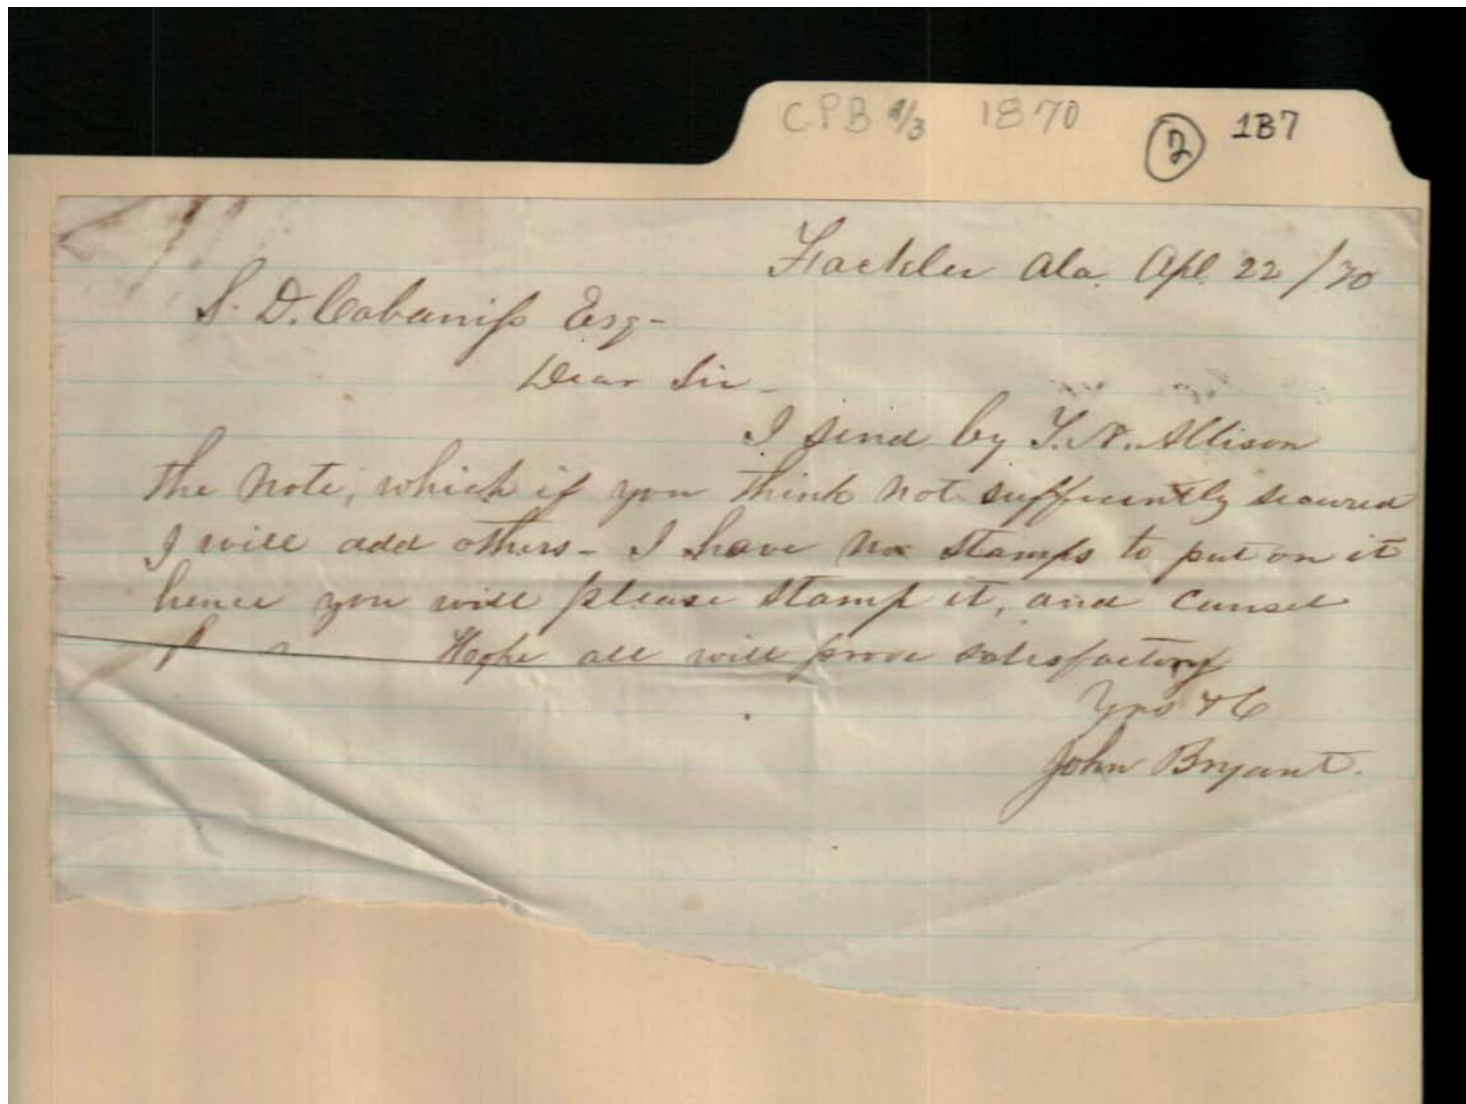 CPB 2/3 1870 2 1B7
Fackler Ala. Apl. 22 /70
S. D. Cabaniss Esq-
Dear Sir-
I send by T. N. Allison
the note, which if you think not sufficiently secured
I will add others- I have no stamps to put on it
hence you will please stamp it, and cancel
Hope all will prove satisfactory
Yrs &C
John Bryant.